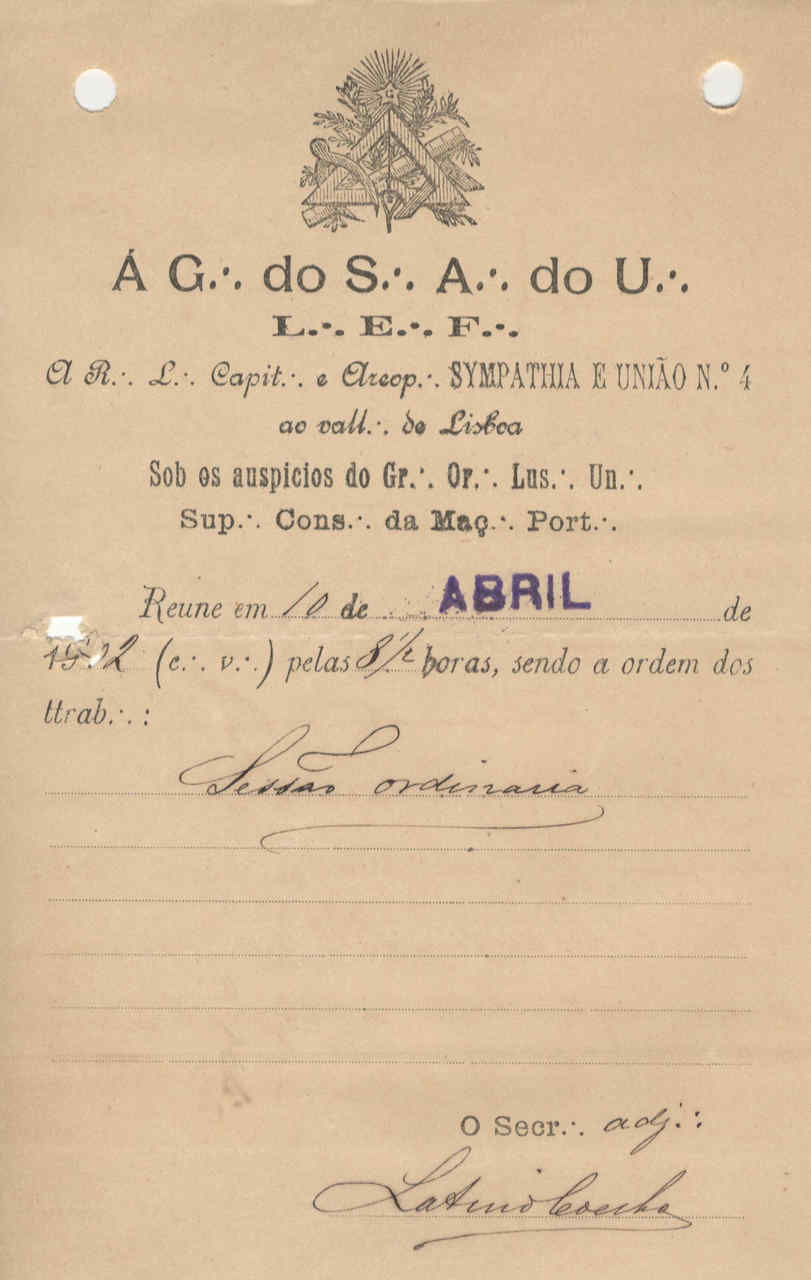 Á G.∴ do S.∴ A.∴ do U.∴
L.∴ E.∴ F.∴
A R.∴ L.∴ Capit.∴ e Areop.∴ SYMPATHIA E UNIÃO N.º 4
ao vall.∴ de Lisboa
Sob os auspicios do Gr.∴ Or.∴ Lus.∴ Un.∴
Sup.∴ Cons.∴ da Maç.∴ Port.∴
Reune em 10 de ABRIL de
(e.∴ v.∴) pelas 8 1/2 horas, sendo a ordem dos
ttrab.∴ :
Sessão ordinaria
O Secr.∴ adj.∴
Latino Coelho